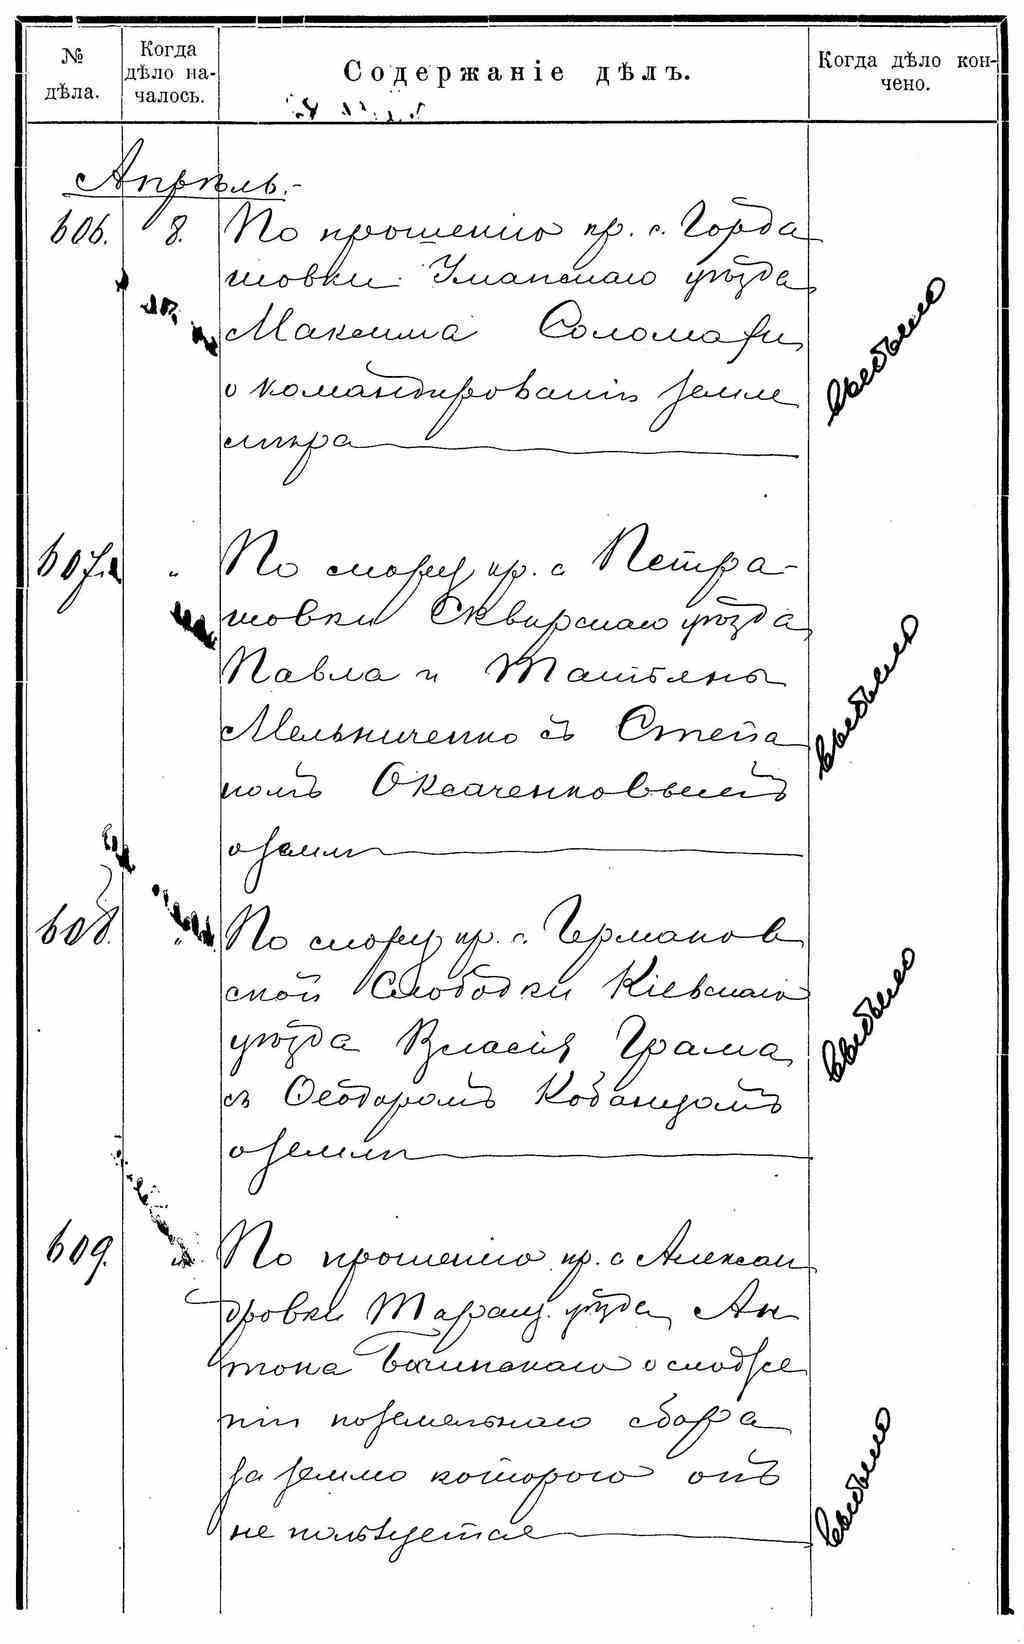 № дѣла.
Когда дѣло на-
чалось.
Содержаніе дѣлъ.
Когда дѣло кон-
чено.
Апрѣль.
606. 8. По прошенію кр. с. Горда
шовки Уманскаго уѣзда
Максима Соломахи
о командированіи земле
мѣра
выбыло
607. " По спору кр. с. Петра-
шовки Сквирскаго уѣзда
Павла и Татьяны
Мельниченко съ Степа
номъ Оксаченковымъ
о землѣ
выбыло
608. " По спору кр. с. Германов
ской Слободки Кіевскаго
уѣзда Власія Грама
съ Ѳеодоромъ Кобанцомъ
о землѣ
выбыло
609. " По прошенію кр. с. Алексан
дровки Таращ. уѣзда Ан
тона Бачинскаго о сложе
ніи поземельнаго сбора
за землю которою онъ
не пользуется
выбыло